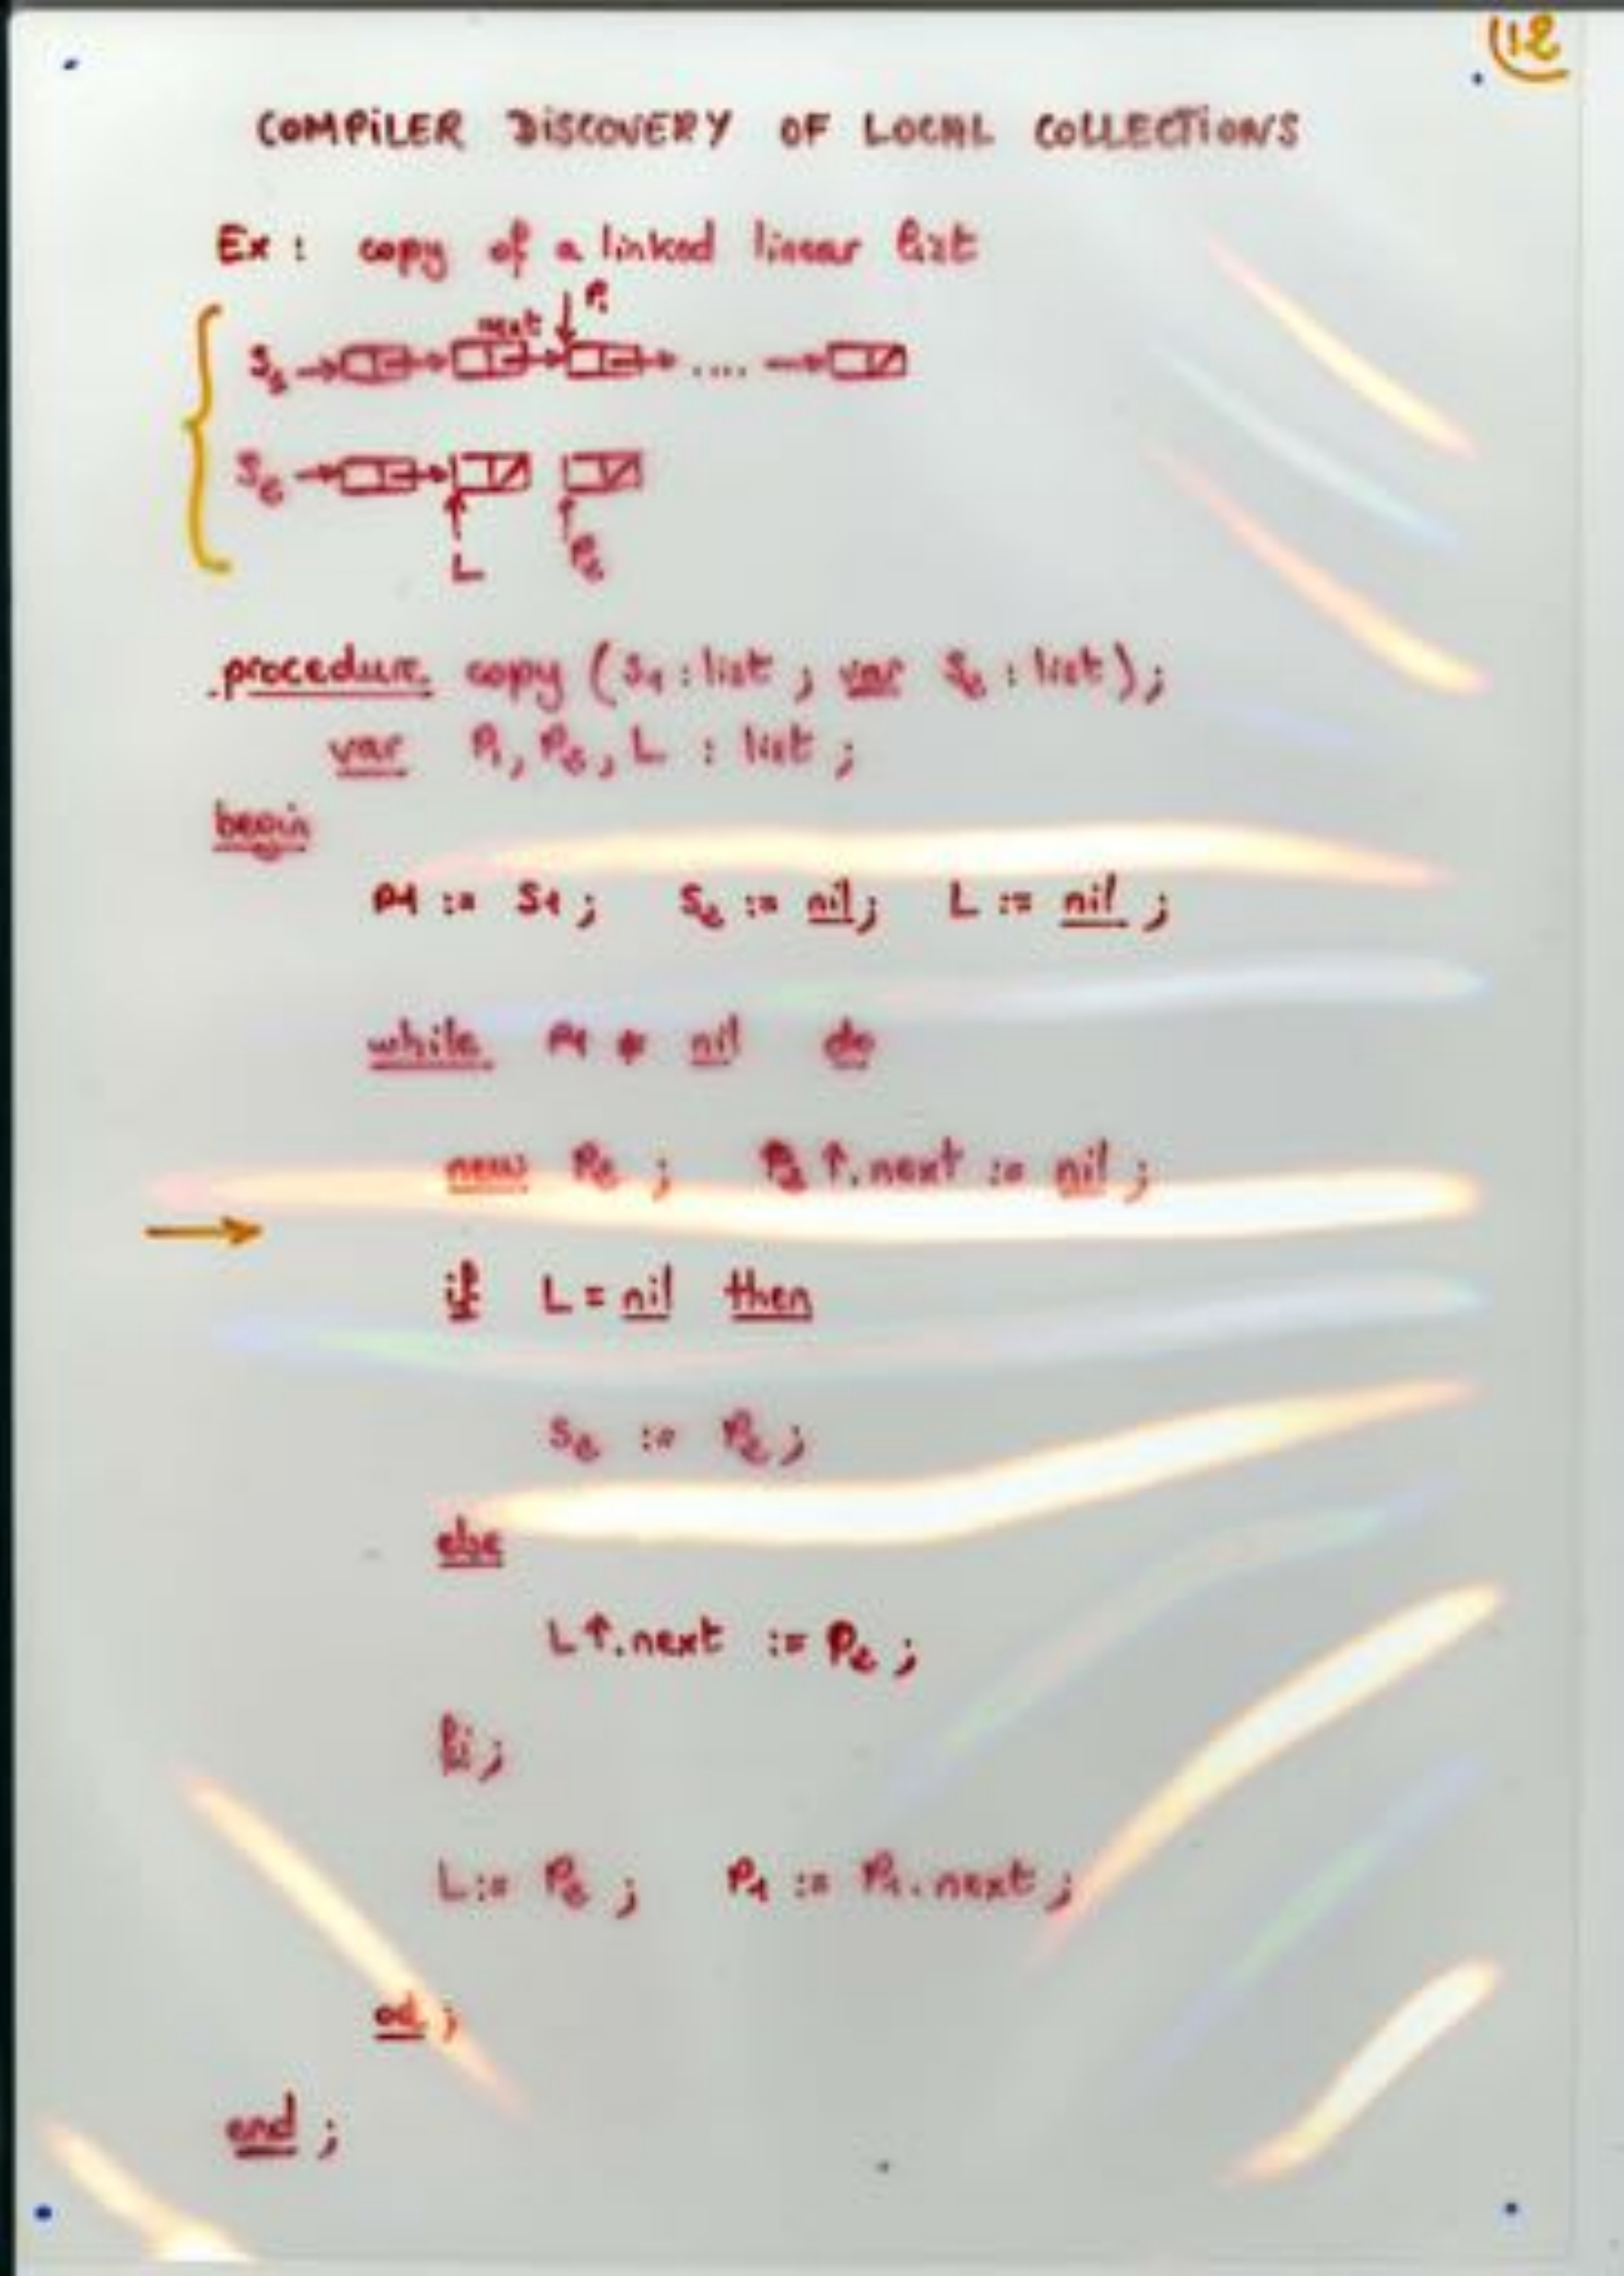 12
COMPILER DISCOVERY OF LOCAL COLLECTIONS
Ex : copy of a linked linear list
P1
next
S1
....
S2
L
P2
procedure copy (S1 : list ; var S2 : list) ;
var P1, P2, L : list ;
begin
P1 := S1 ; S2 := nil ; L := nil ;
while P1 ≠ nil do
new P2 ; P2↑.next := nil ;
if L = nil then
S2 := P2 ;
else
L↑.next := P2 ;
fi ;
L := P2 ; P1 := P1.next ;
od ;
end ;